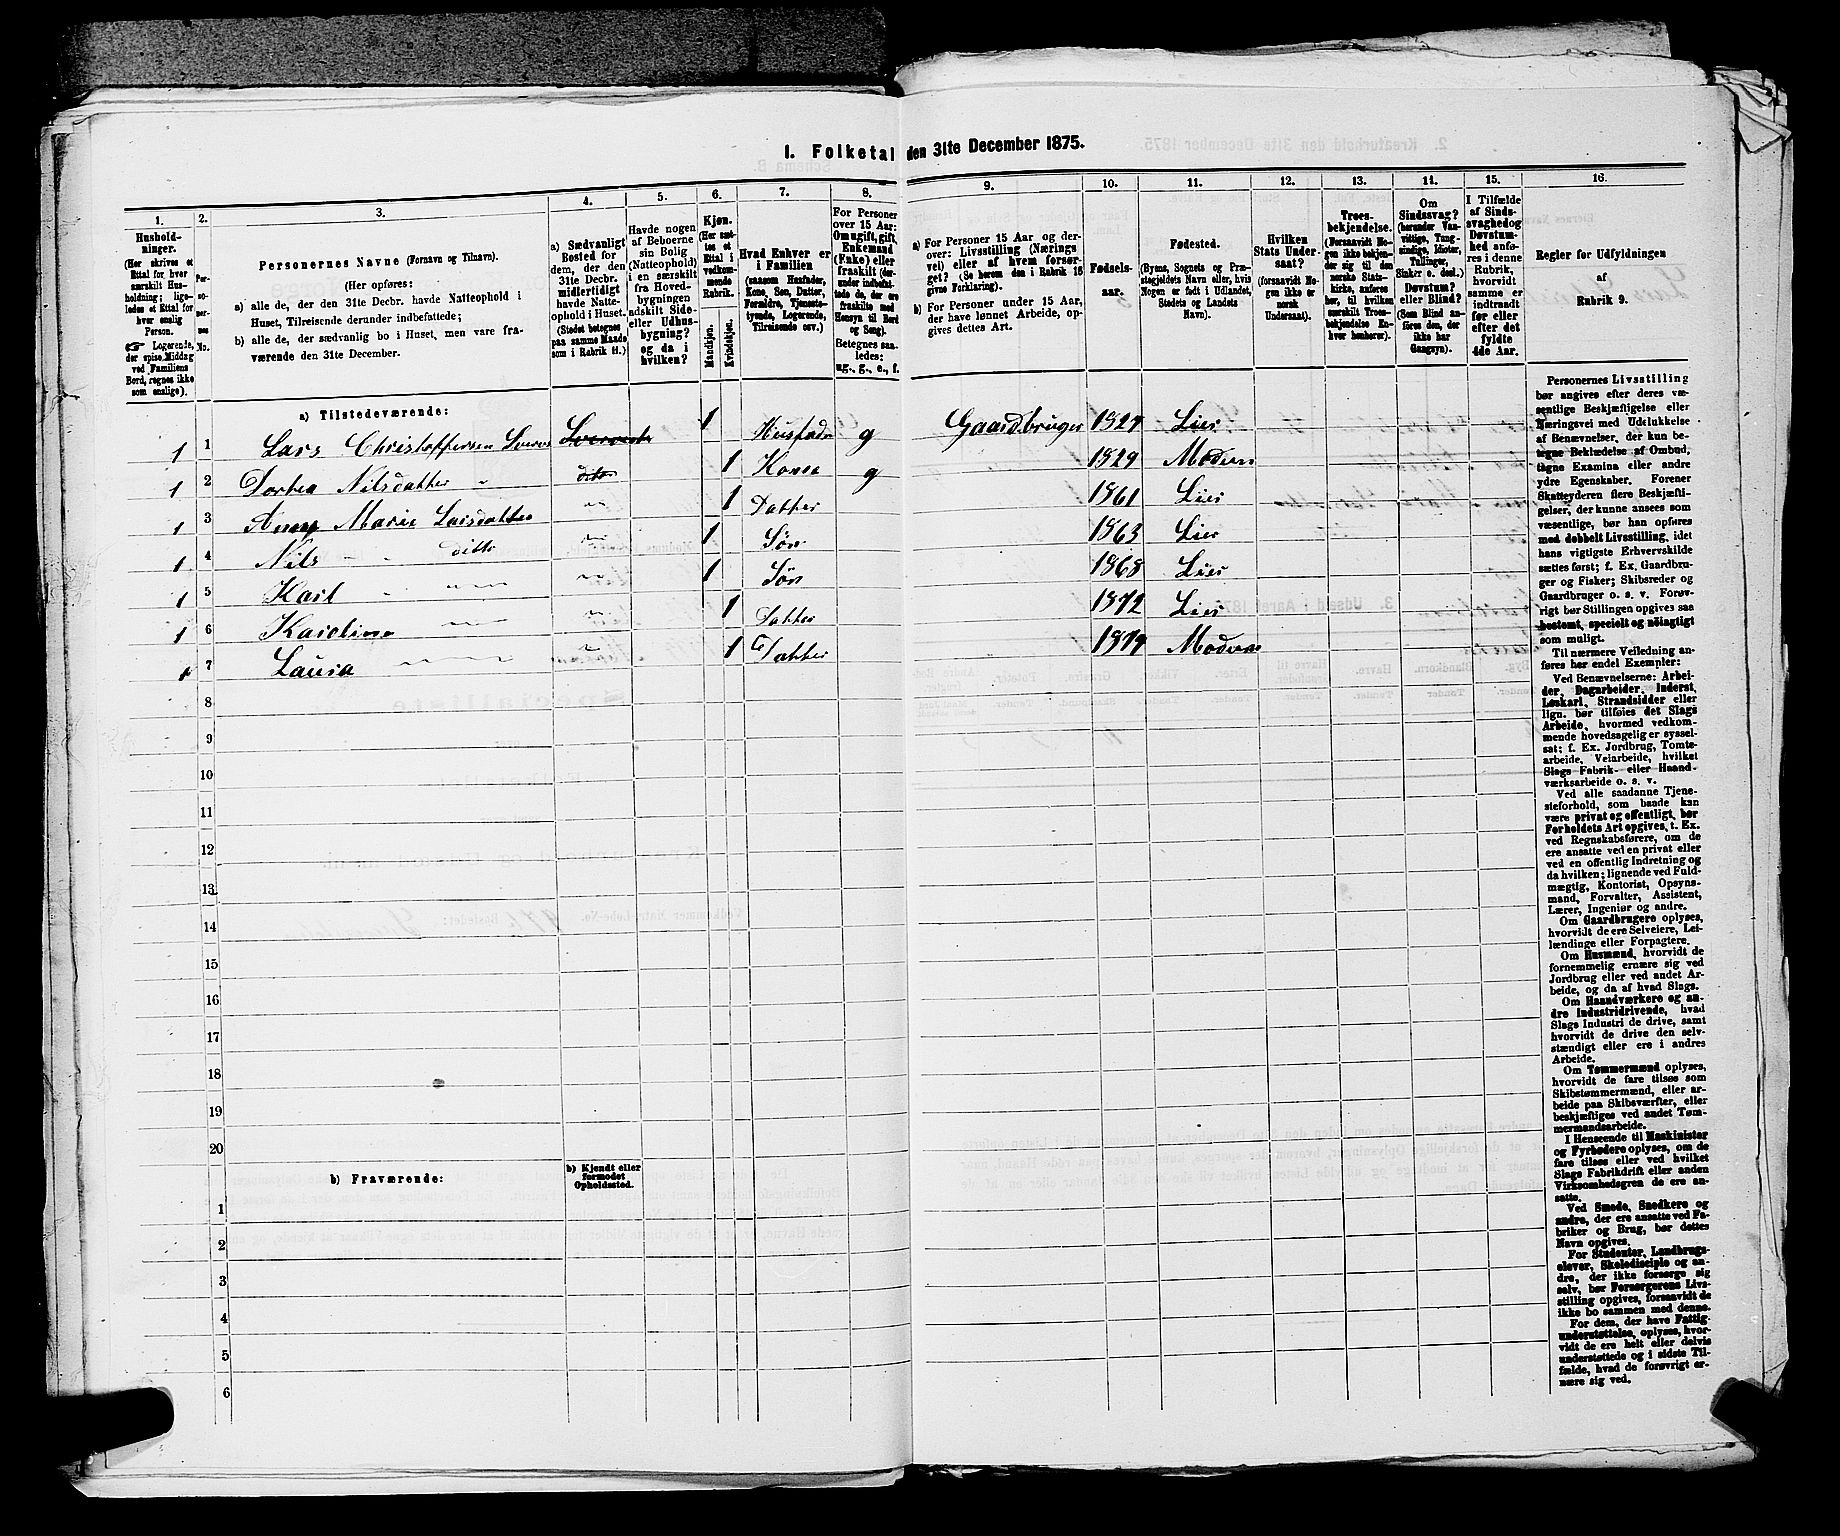 1. Folketal den 31te December 1875.
1. 2. 3. 4. 5. 6. 7. 8. 9. 10. 11. 12. 13. 14. 15. 16.
Hushold-
ninger.
(Her skrives et
Ettal for hver
særskilt Hus-
holdning; lige-
ledes et Ettal for
hver enslig
Person.
☞ Logerende,
der spise Middag
ved Familiens
Bord, regnes ikke
som enslige).
Per-
so-
ner-
nes
No.
Personernes Navne (Fornavn og Tilnavn).
(Her opføres:
a) alle de, der den 31te Decbr. havde Natteophold i
Huset, Tilreisende derunder indbefattede;
b) alle de, der sædvanlig bo i Huset, men vare fra-
værende den 31te December.
a) Sædvanligt
Bosted for
dem, der den
31te Decbr.
midlertidigt
havde Natte-
ophold i Huset.
(Stedet betegnes
paa samme Maade
som i Rubrik 11.)
Havde nogen
af Beboerne
sin Bolig
(Natteophold)
i en særskilt
fra Hoved-
bygningen
adskilt Side-
eller Udhus-
bygning?
og da i
hvilken?
Kjøn.
(Her sæt-
tes et
Ettal i
vedkom-
mende
Rubrik.
Mandkjøn.
Kvindekjøn.
Hvad Enhver er
i Familien
(saasom Husfader,
Kone, Søn, Datter,
Forældre, Tjeneste-
tyende, Logerende,
Tilreisende osv.)
For Personer
over 15 Aar:
Om ugift, gift,
Enkemand
(Enke) eller
fraskilt (der-
under indbefat-
tede de, der ere
fraskilte med
Hensyn til Bord
og Seng).
Betegnes saa-
ledes:
ug., g., e., f.
a) For Personer 15 Aar og der-
over: Livsstilling (Nærings
vei) eller af hvem forsør-
get? (Se herom den i Rubrik 16
givne Forklaring).
b) For Personer under 15 Aar,
der have lønnet Arbeide, op-
gives dettes Art.
Fødsels-
aar.
Fødested.
(Byens, Sognets og Præ-
stegjeldets Navn eller, hvis
Nogen er født i Udlandet,
Stedets og Landets
Navn).
Hvilken
Stats Under-
saat?
(forsaavidt No-
gen ikke er
norsk
Undersaat).
Troes-
bekjendelse.
(Forsaavidt No-
gen ikke bekjen-
der sig til den
norske Stats-
kirke, anføres
her, til hvilken
særskilt Troes-
bekjendelse En-
hver henhører).
Om
Sindssvag?
(herunder Van-
vittige, Tung-
sindige, Idioter,
Tullinger,
Sinker o. desl.)
Døvstum?
eller Blind?
(Som Blind an-
føres den, der
ikke har
Gangsyn).
I Tilfælde
af Sinds-
svaghed og
Døvstum-
hed anfø-
res i denne
Rubrik,
hvorvidt
samme er
indtraadt
før eller
efter det
fyldte
4de Aar.
Regler for Udfyldningen
af
Rubrik 9.
a) Tilstedeværende:
1 1 Lars Christoffersen 1 Husfader g Gaardbruger 1827 Lier
1 2 Dortea Nilsdatter " ditto 1 Kone g 1829 Modum
1 3 Anne Marie Larsdatter " 1 Datter 1861 Lier
1 4 Nils " ditto " 1 Søn 1863 Lier
1 5 Karl " " " 1 Søn 1868 Lier
1 6 Karoline " " 1 Datter 1872 Lier
1 7 Laura " " 1 Datter 1874 Modum
8
9
10
11
12
13
14
15
16
17
18
19
20
b) Fraværende:
b) Kjendt eller
formodet
Opholdssted.
1
2
3
4
5
6
Personernes Livsstilling
bør angives efter deres væ-
sentlige Beskjæftigelse eller
Næringsvei med Udelukkelse
af Benævnelser, der kun be-
tegne Beklædelse af Ombud,
tagne Examina eller andre
ydre Egenskaber. Forener
Skatteyderen flere Beskjæfti-
gelser, der kunne ansees som
væsentlige, bør han opføres
med dobbelt Livsstilling, idet
hans vigtigste Erhvervskilde
sættes først; f. Ex. Gaardbru-
ger og Fisker; Skibsreder og
Gaardbruger o. s. v. Forøv-
rigt bør Stillingen opgives saa
bestemt, specielt og nøiagtigt
som muligt.
Til nærmere Veiledning an-
føres her endel Exempler:
Ved Benævnelserne: Arbei-
der, Dagarbeider, Inderst,
Løskarl, Strandsidder eller
lign. bør tilføies det Slags
Arbeide, hvormed vedkom-
mende hovedsagelig er syssel-
sat; f. Ex. Jordbrug, Tomte-
arbeide, Veiarbeide, hvilket
Slags Fabrik- eller Haand-
værksarbeide o. s. v.
Ved alle saadanne Tjene-
steforhold, som baade kan
være privat og offentligt, bør
Forholdets Art opgives, t. Ex.
ved Regnskabsførere, om de
ere ansatte ved en privat eller
ved en offentlig Indretning og
da hvilken; lignende ved Fuld-
mægtig, Kontorist, Opsyns-
mand, Forvalter, Assistent,
Lærer, Ingeniør og andre.
Om Gaardbrugere oplyses,
hvorvidt de ere Selveiere, Lei-
lændinge eller Forpagtere.
Om Husmænd, hvorvidt de
fornemmelig ernære sig ved
Jordbrug eller ved andet Ar-
beide, og da af hvad Slags.
Om Haandværkere og an-
dre Industridrivende, hvad
Slags Industri de drive, samt
hvorvidt de drive den selv-
stændigt eller ere i andres
Arbeide.
Om Tømmermænd oplyses,
hvorvidt de fare tilsøs som
Skibstømmermænd, eller ar-
beide paa Skibsværfter, eller
beskjæftiges ved andet Tøm-
mermandsarbeide.
I Henseende til Maskinister
og Fyrbødere oplyses, om de
fare tilsøs eller ved hvilket
Slags Fabrikdrift eller anden
Virksomhedsgren de ere an-
satte.
Ved Smede, Snedkere og
andre, der ere ansatte ved Fa-
briker og Brug, bør dettes
Navn opgives.
For Studenter, Landbrugs-
elever, Skoledisciple og an-
dre, der ikke forsørge sig
selv, bør Forsørgerens Livs-
stilling opgives, forsaavidt de
ikke bo sammen med denne.
For dem, der have Fattig-
understøttelse, oplyses, hvor-
vidt de ere helt eller delvis
understøttede og i sidste Til-
fælde, hvad de forøvrigt er-
nære sig ved.